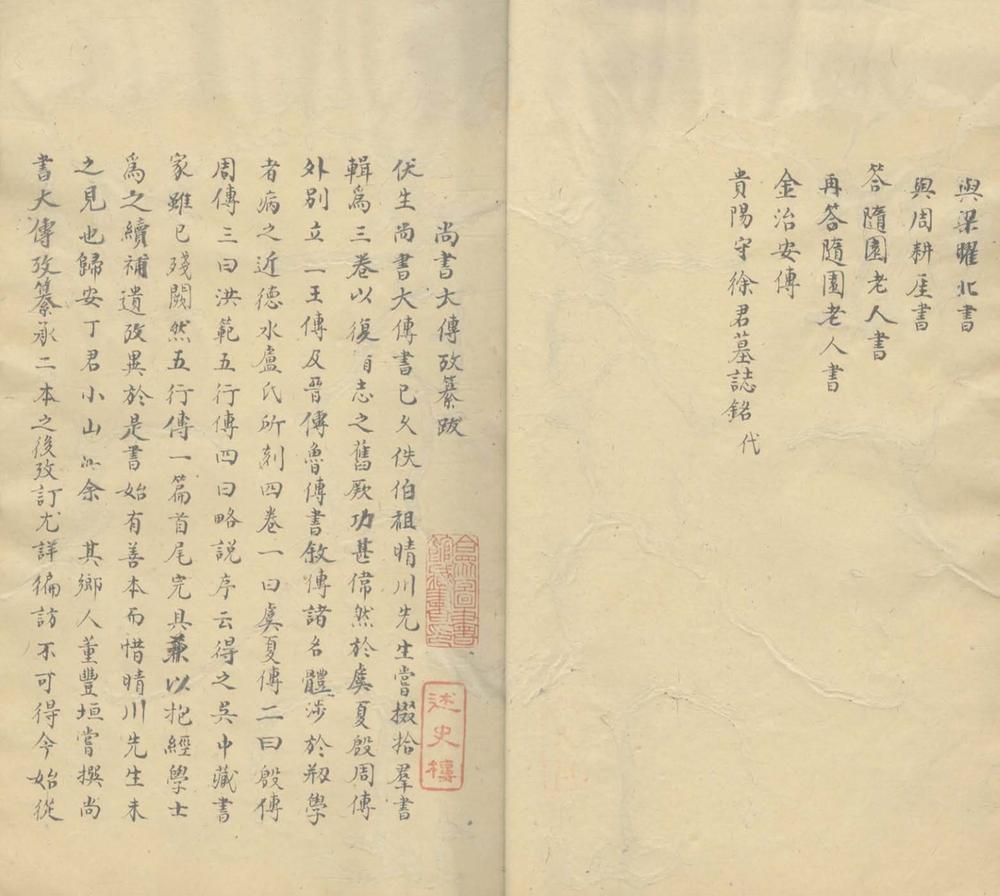 與梁曜北書
與周耕厓書
答隨園老人書
再答隨園老人書
金治安傳
貴陽守徐君墓誌銘 代
尚書大傳攷纂跋
伏生尚書大傳書已久佚伯祖晴川先生嘗掇拾羣書
輯爲三卷以復 志之舊厥功甚偉然於虞夏殷周傳
外別立一王傳及晉傳魯傳書敘傳諸名體涉於剏學
者病之近德水盧氏所刻四卷一曰虞夏傳二曰殷傳
周傳三曰洪範五行傳四曰略說序云得之吳中藏書
家雖已殘闕然五行傳一篇首尾完具兼以抱經學士
爲之續補遺攷異於是書始有善本而惜晴川先生未
之見也歸安丁君小山 余 其鄉人董豐垣嘗撰尚
書大傳攷纂承二本之後攷訂尤詳徧訪不可得今始從
述史樓